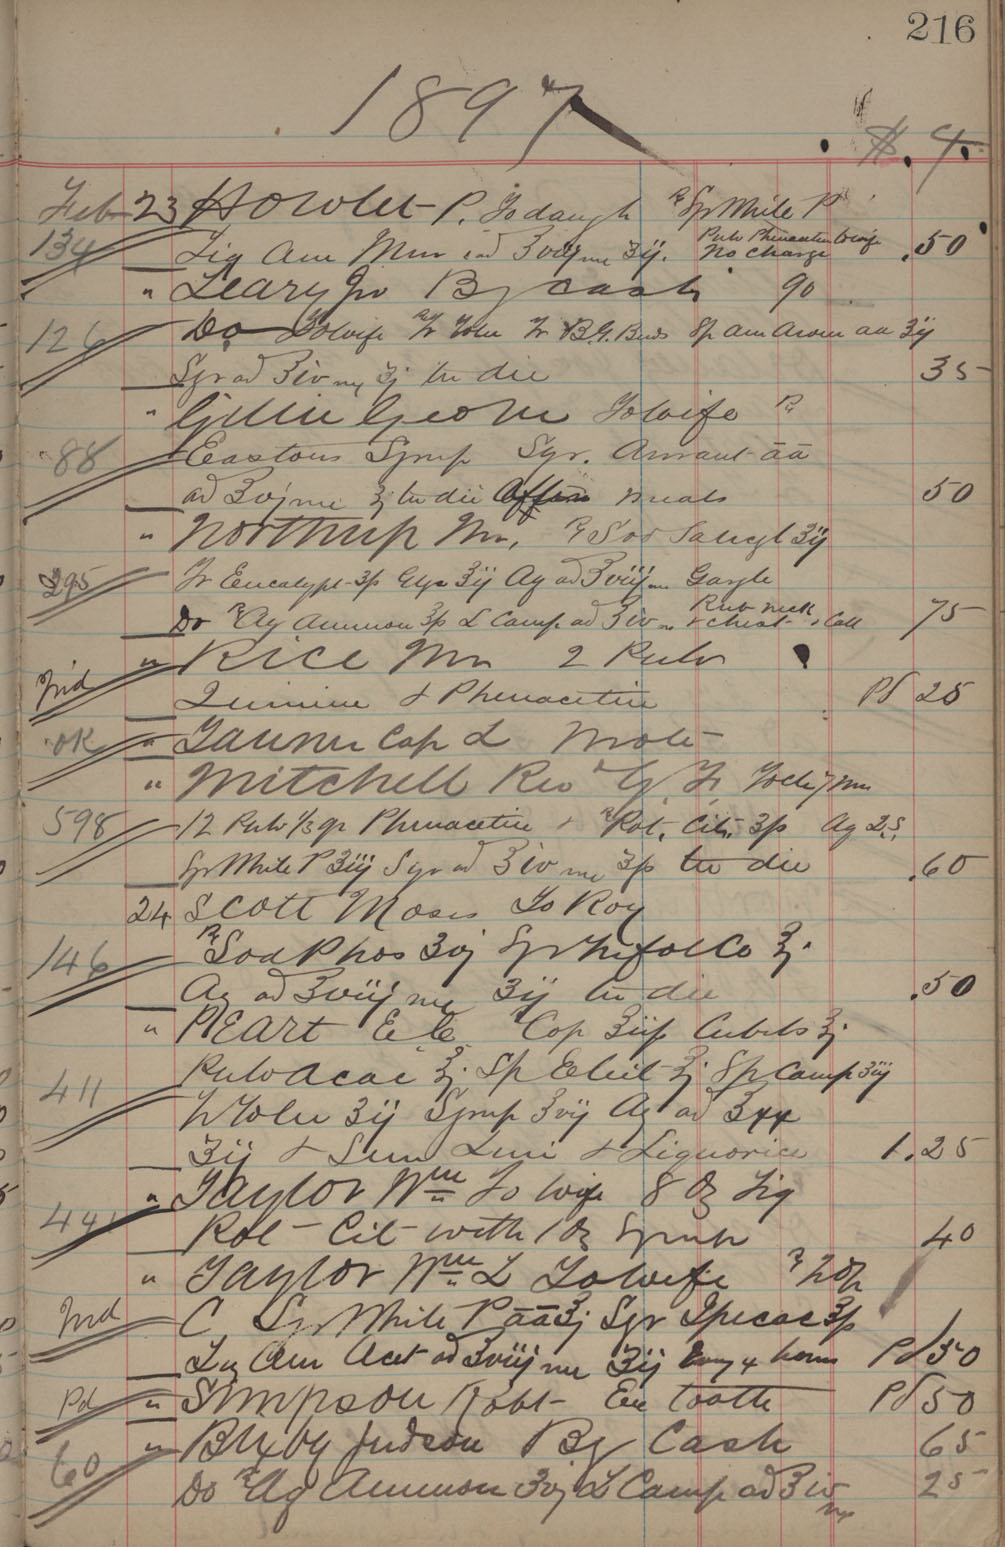 216
1897
$. ¢.
Feb 23 Howlet P. To daugh ℞ Syr White P
134 Liq Am Mur ad ʒviij me ʒij. Pulv Phenacetin No charge .50
" Leary Jno By cash 90
126 Do To wife ℞ Tr Tolu Tr B.G. Buds Sp Am Arom aa ʒij
Syr ad ʒiv me ʒj ter die 35
" Geo M To wife ℞
88 Eastons Syrup Syr. Aurant āā
ad ʒvj me ʒj ter die After meals 50
" Northrup Mr, ℞ Sod Salicyl ʒij
295 Tr Eucalypt ʒſs Glyc ʒij Aq ad ʒviij me Gargle
Do ℞ Aq Ammon ʒſs L Camp ad ʒiv me Rub neck & chest & Call 75
" Rice Mr 2 Pulv
Ind Quinine & Phenacetine Pd 25
OK " Tanner Cap L Mole
" Mitchell Rev G. F.
598 12 Pulv ⅓ gr Phenacetine + ℞ Pot. Cit. ʒſs Aq Q.S.
Syr White P ʒiij Syr ad ʒiv me ʒſs ter die .60
24 Scott Moses To Roy
146 ℞ Sod Phos ʒvj Syr Trifol Co ʒj.
Aq ad ʒviij me ʒij ter die .50
" Peart E C ℞ Cop ʒiiſs Cubebs ʒj.
411 Pulv Acac ʒj. Sp Etheit ʒj Sp Camp ʒiij
Tr Tolu ʒij Syrup ʒvij Aq ad ʒxx
ʒij & Quin & Liquorice 1.25
" Taylor Wm To wife 8 Oz Liq
441 Pot Cit with 1 Oz Syrup 40
" Taylor Wm L To wife ℞
Ind C Syr White P āā ʒj Syr Ipecac ʒſs
Liq Am Acet ad ʒviij me ʒij Every 4 hours Pd 50
Pd " Simpson Robt Ex tooth Pd 50
60 " Bixby Judson By Cash 65
Do ℞ Aq Ammon ʒvj L Camp ad ʒiv me 25